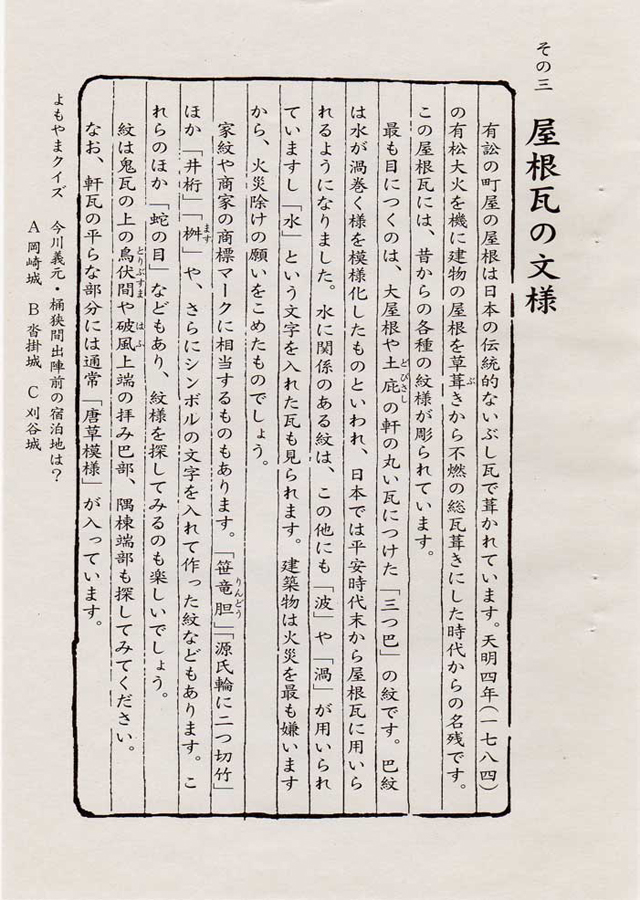 その三
屋根瓦の文様
有訟の町屋の屋根は日本の伝統的ないぶし瓦で葺かれています。天明四年(一七八四)
の有松大火を機に建物の屋根を草葺ぶきから不燃の総瓦葺きにした時代からの名残です。
この屋根瓦には、昔からの各種の紋様が彫られています。
最も目につくのは、大屋根や土庇どびさしの軒の丸い瓦につけた「三つ巴」の紋です。巴紋
は水が渦巻く様を模様化したものといわれ、日本では平安時代末から屋根瓦に用いら
れるようになりました。水に関係のある紋は、この他にも「波」や「渦」が用いられ
ていますし「水」という文字を入れた瓦も見られます。建築物は火災を最も嫌います
から、火災除けの願いをこめたものでしょう。
家紋や商家の商標マークに相当するものもあります。「笹竜胆りんどう」「源氏輪に二つ切竹」
ほか「井桁」「桝ます」や、さらにシンボルの文字を入れて作った紋などもあります。こ
れらのほか「蛇の目」などもあり、紋様を探してみるのも楽しいでしょう。
紋は鬼瓦の上の鳥伏間とりぶすまや破風はふ上端の拝み巴部、隅棟端部も探してみてください。
なお、軒瓦の平らな部分には通常「唐草模様」が入っています。
よもやまクイズ 今川義元・桶狭間出陣前の宿泊地は?
A 岡崎城 B 沓掛城 C 刈谷城